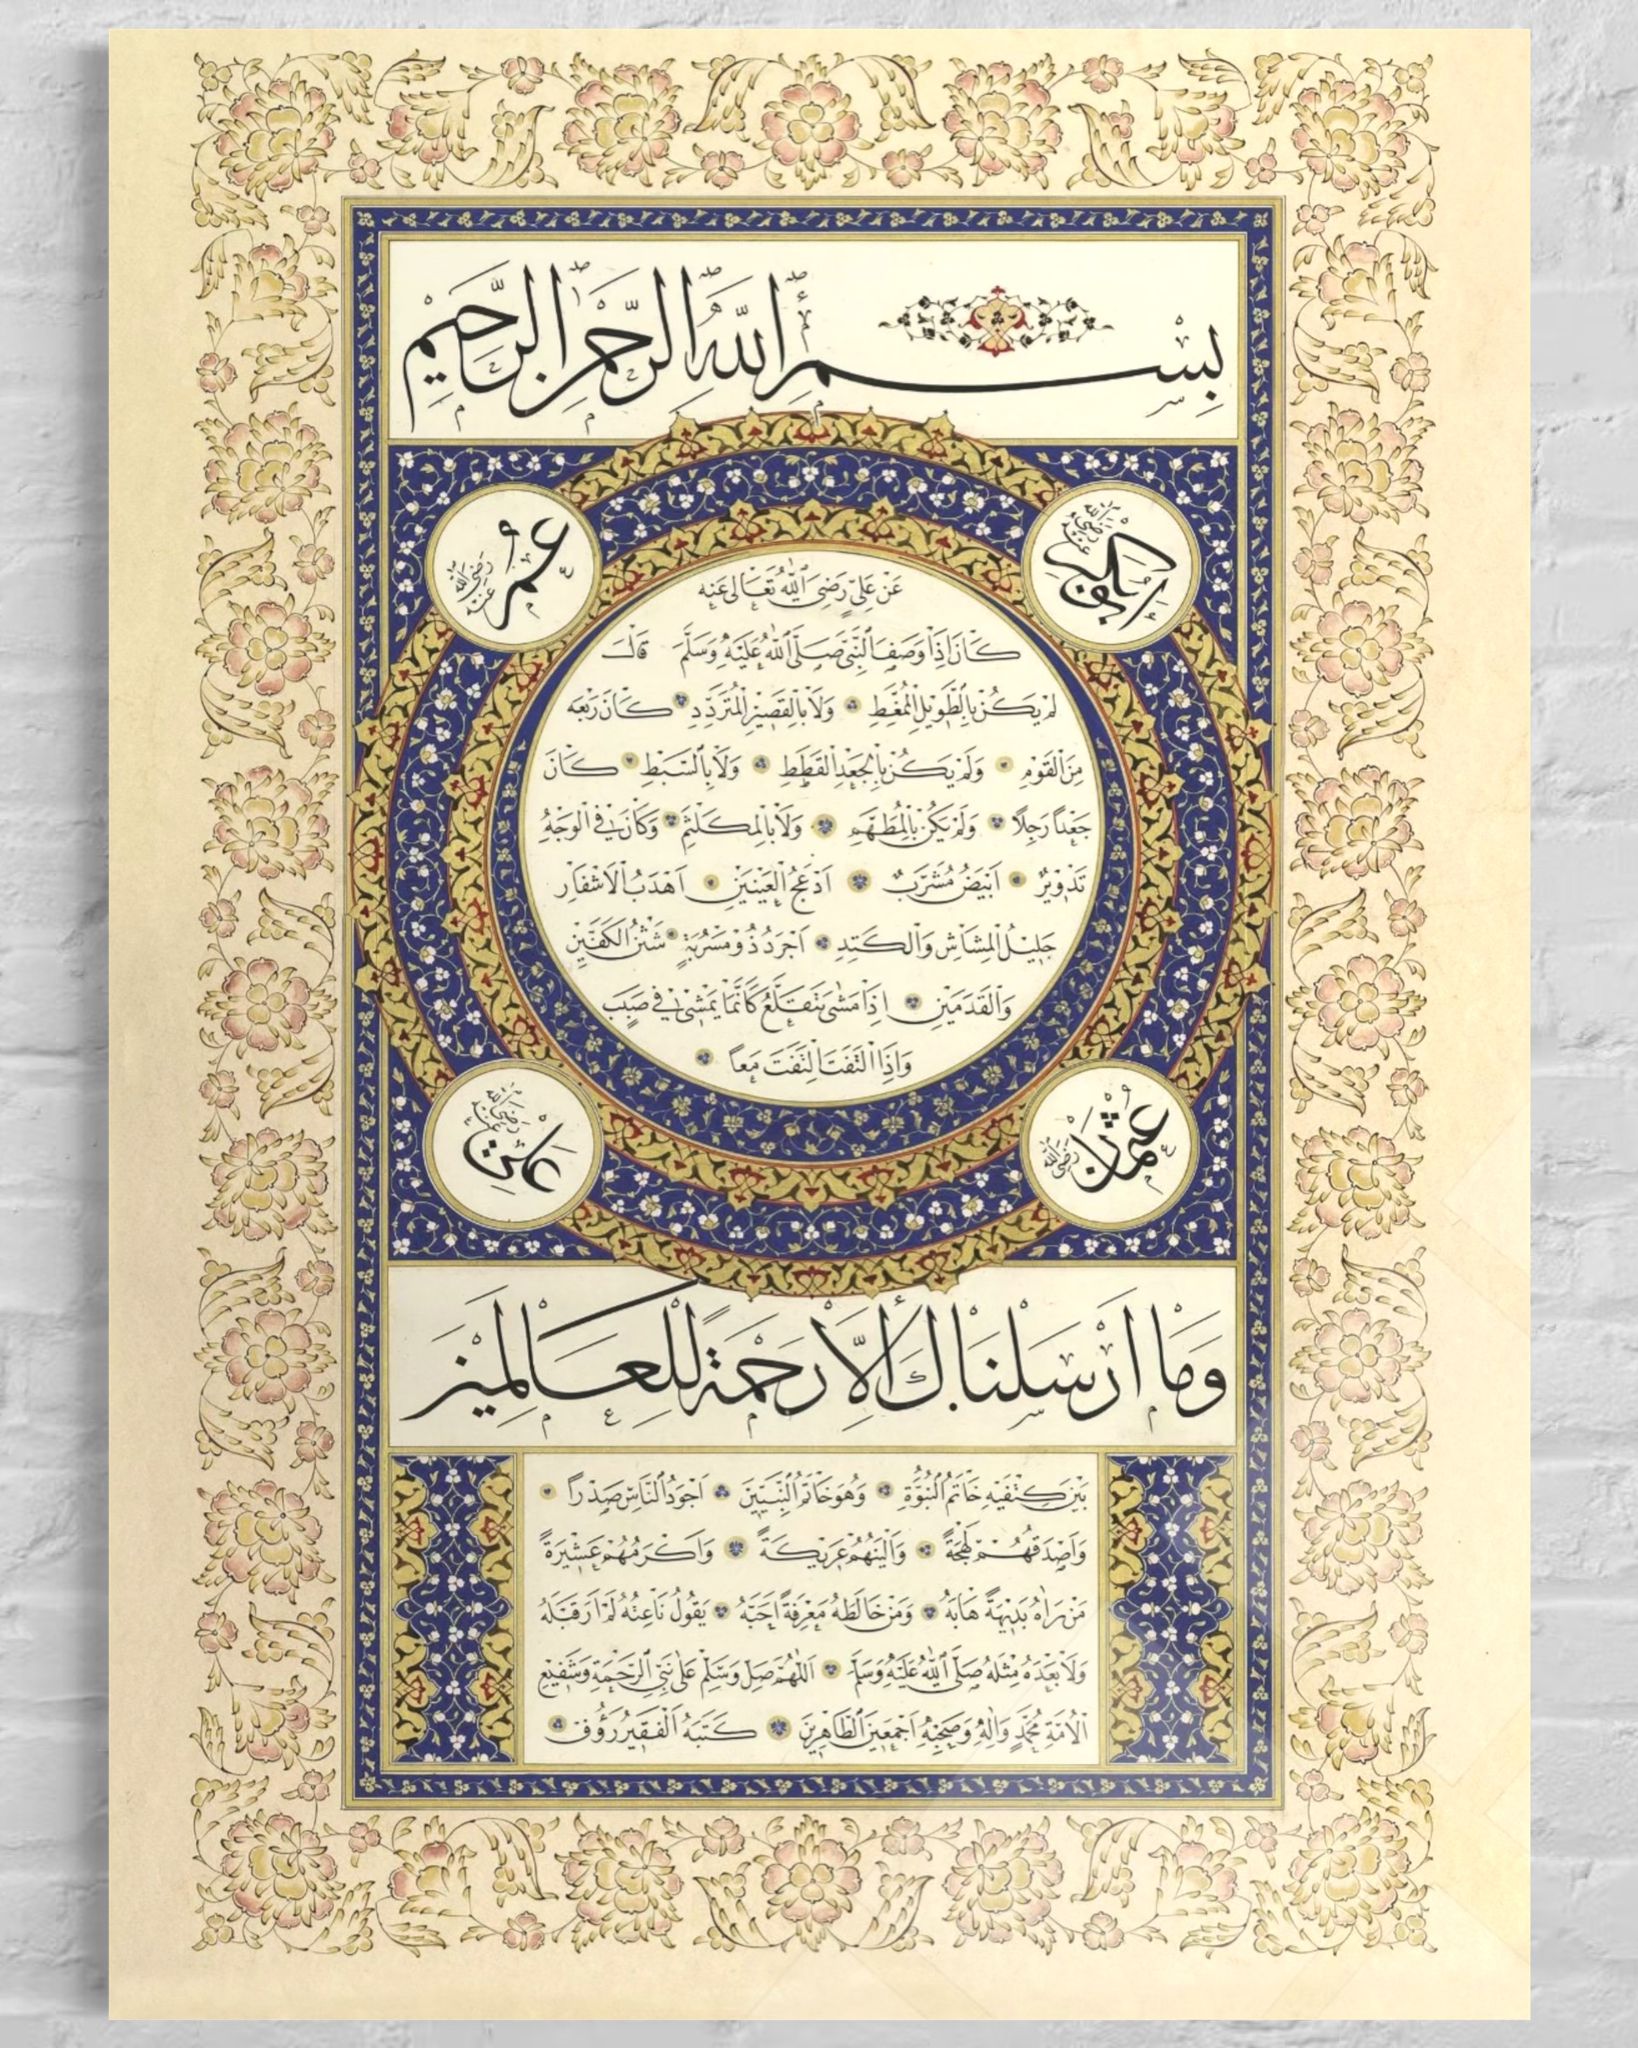 بِسْمِ اللهِ الرَّحْمٰنِ الرَّحِيمِ
ابوبكر رَضِيَ اللهُ عَنْهُ
عُمَرُ رَضِيَ اللهُ عَنْهُ
عَنْ عَلِيٍّ رَضِيَ اللهُ تَعَالٰى عَنْهُ
كَانَ اِذَا وَصَفَ النَّبِيَّ صَلَّى اللهُ عَلَيْهِ وَسَلَّمَ قَالَ
لَمْ يَكُنْ بِالطَّوِيلِ الْمُمَّغِطِ وَلَا بِالْقَصِيرِ الْمُتَرَدِّدِ كَانَ رَبْعَةً
مِنَ الْقَوْمِ وَلَمْ يَكُنْ بِالْجَعْدِ الْقَطَطِ وَلَا بِالسَّبْطِ كَانَ
جَعْدًا رَجِلًا وَلَمْ يَكُنْ بِالْمُطَهَّمِ وَلَا بِالْمُكَلْثَمِ وَكَانَ فِي الْوَجْهِ
تَدْوِيرٌ اَبْيَضُ مُشْرَبٌ اَدْعَجُ الْعَيْنَيْنِ اَهْدَبُ الْاَشْفَارِ
جَلِيلُ الْمُشَاشِ وَالْكَتَدِ اَجْرَدُ ذُو مَسْرُبَةٍ شَثْنُ الْكَفَّيْنِ
وَالْقَدَمَيْنِ اِذَا مَشٰى تَقَلَّعَ كَاَنَّمَا يَمْشِي فِي صَبَبٍ
وَاِذَا الْتَفَتَ الْتَفَتَ مَعًا
عُثْمَان رَضِيَ اللهُ
عَلِي رَضِيَ اللهُ عَنْهُ
وَمَا اَرْسَلْنَاكَ اِلَّا رَحْمَةً لِلْعَالَمِينَ
بَيْنَ كِتْفَيْهِ خَاتَمُ النُّبُوَّةِ وَهُوَ خَاتَمُ النَّبِيِّينَ اَجْوَدُ النَّاسِ صَدْرًا
وَاَصْدَقُهُمْ لَهْجَةً وَاَلْيَنُهُمْ عَرِيكَةً وَاَكْرَمُهُمْ عَشِيرَةً
مَنْ رَاٰهُ بَدِيهَةً هَابَهُ وَمَنْ خَالَطَهُ مَعْرِفَةً اَحَبَّهُ يَقُولُ نَاعِتُهُ لَمْ اَرَ قَبْلَهُ
وَلَا بَعْدَهُ مِثْلَهُ صَلَّى اللهُ عَلَيْهِ وَسَلَّمَ اَللّٰهُمَّ صَلِّ وَسَلِّمْ عَلٰى نَبِيِّ الرَّحْمَةِ وَشَفِيعِ
الْاُمَّةِ مُحَمَّدٍ وَاٰلِهِ وَصَحْبِهِ اَجْمَعِينَ الطَّاهِرِينَ كَتَبَهُ الْفَقِيرُ رَؤُوف